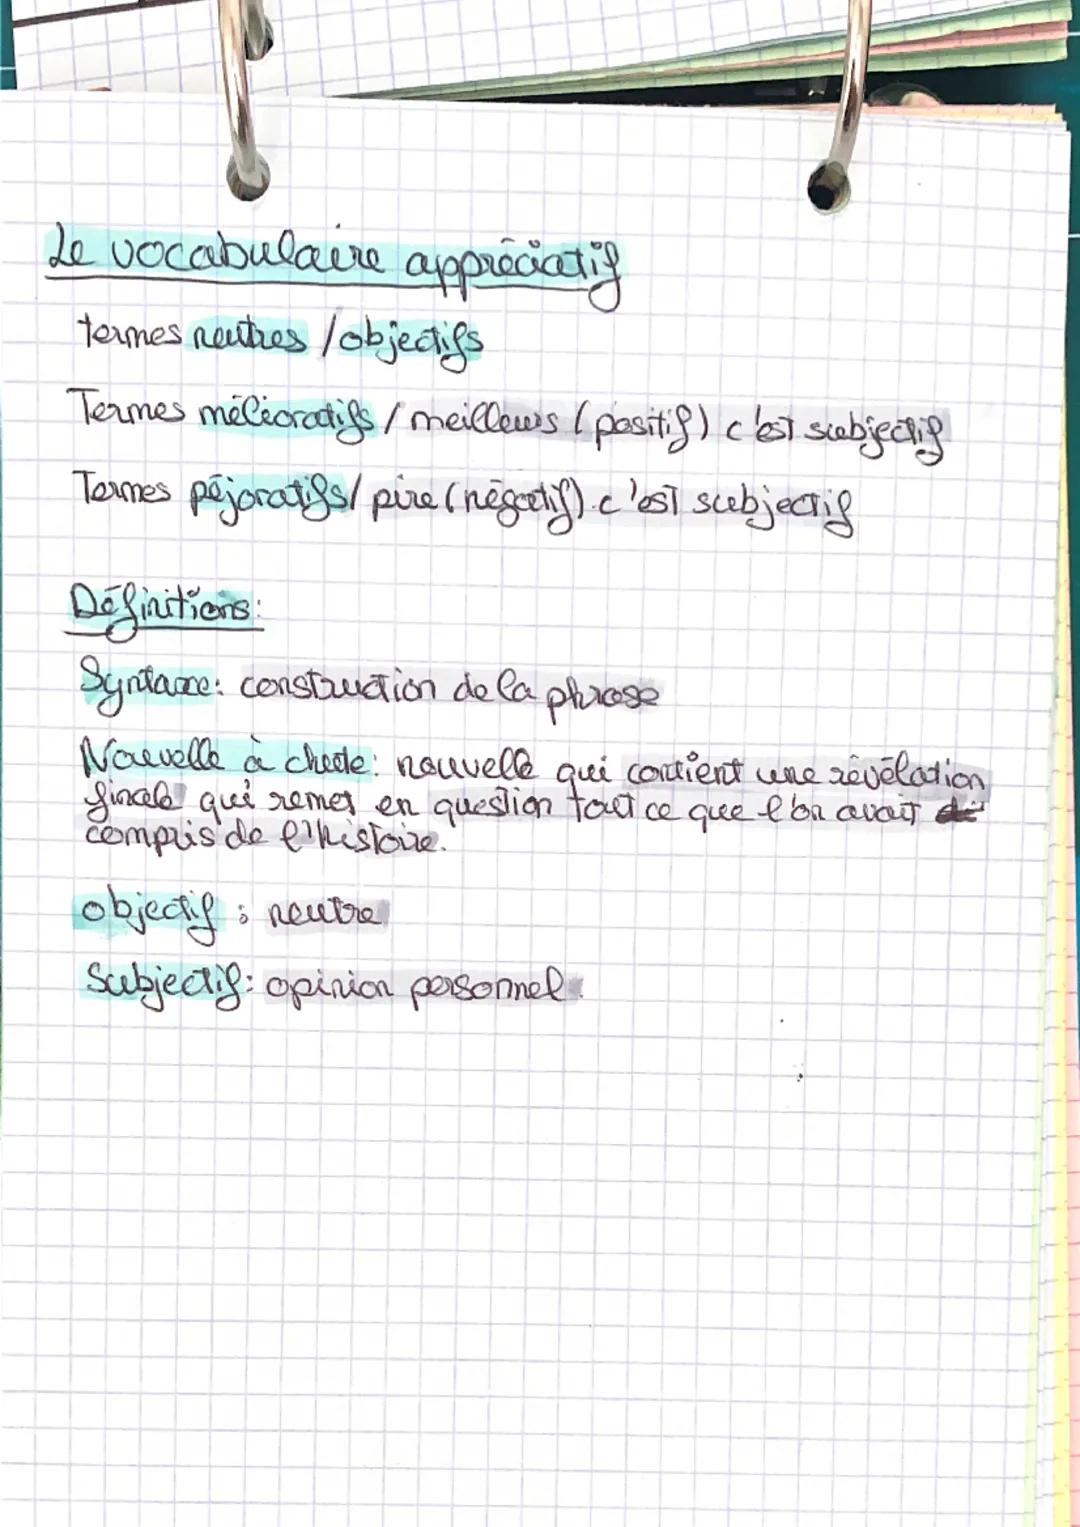 Le vocabulaire appréciatif
termes neutres / objectifs
Termes mélioratifs / meilleurs (positif) c'est subjectif
Termes péjoratifs / pire (négatif) c'est subjectif
Définitions:
Syntaxe: construction de la phrase
Nouvelle à chute: nouvelle qui contient une révélation
finale qui remet en question tout ce que l'on avait
compris de l'histoire.
objectif : neutre
Subjectif: opinion personnel